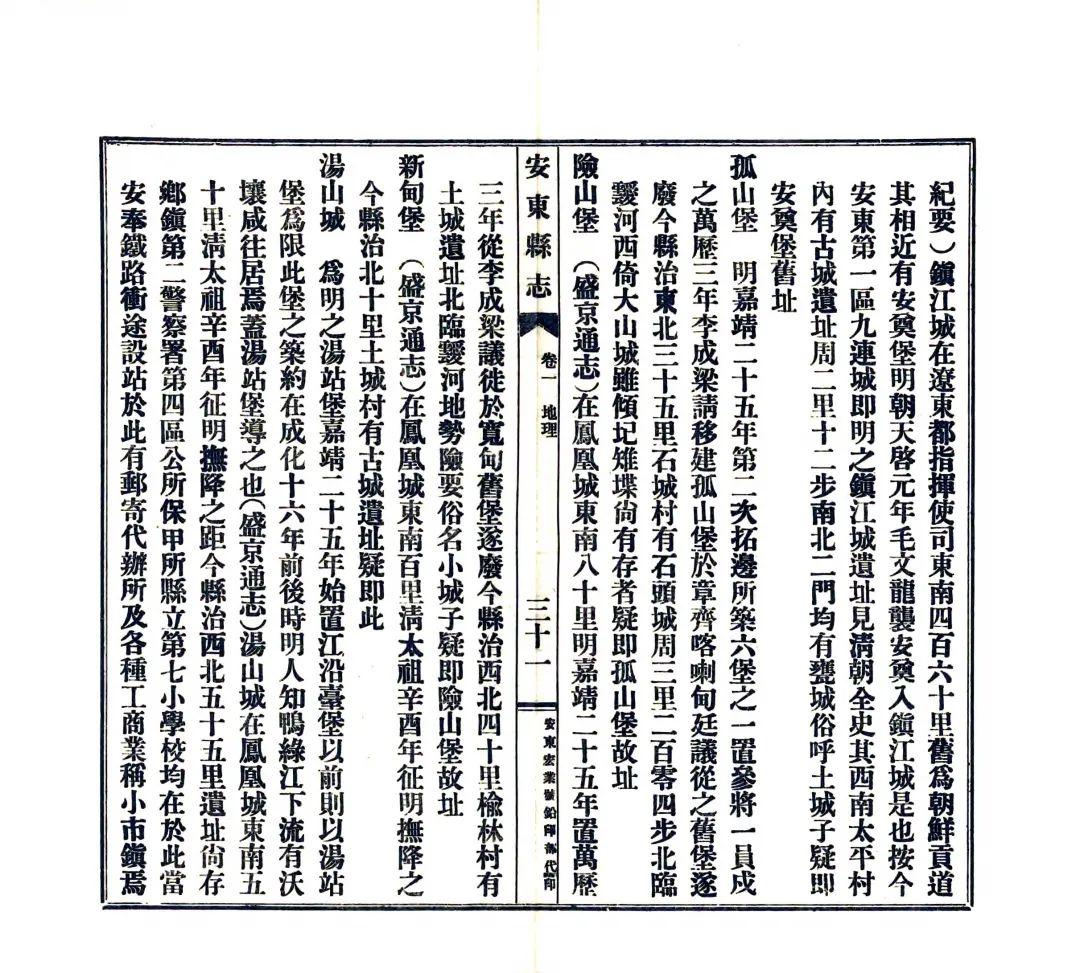 紀要）鎭江城在遼東都指揮使司東南四百六十里舊爲朝鮮貢道
其相近有安奠堡明朝天啓元年毛文龍襲安奠入鎭江城是也按今
安東第一區九連城即明之鎭江城遺址見淸朝全史其西南太平村
內有古城遺址周二里十二步南北二門均有甕城俗呼土城子疑即
安奠堡舊址
孤山堡　明嘉靖二十五年第二次拓邊所築六堡之一置參將一員戍
之萬歷三年李成梁請移建孤山堡於章齊喀喇甸廷議從之舊堡遂
廢今縣治東北三十五里石城村有石頭城周三里二百零四步北臨
靉河西倚大山城雖傾圮雉堞尙有存者疑即孤山堡故址
險山堡　（盛京通志）在鳳凰城東南八十里明嘉靖二十五年置萬歷
安東縣志
卷一　地理
三十一
安東宏業號鉛印部代印
三年從李成梁議徙於寬甸舊堡遂廢今縣治西北四十里楡林村有
土城遺址北臨靉河地勢險要俗名小城子疑即險山堡故址
新甸堡　（盛京通志）在鳳凰城東南百里淸太祖辛酉年征明撫降之
今縣治北十里土城村有古城遺址疑即此
湯山城　爲明之湯站堡嘉靖二十五年始置江沿臺堡以前則以湯站
堡爲限此堡之築約在成化十六年前後時明人知鴨綠江下流有沃
壤咸往居焉蓋湯站堡導之也（盛京通志）湯山城在鳳凰城東南五
十里淸太祖辛酉年征明撫降之距今縣治西北五十五里遺址尙存
鄕鎭第二警察署第四區公所保甲所縣立第七小學校均在於此當
安奉鐵路衝途設站於此有郵寄代辦所及各種工商業稱小市鎭焉